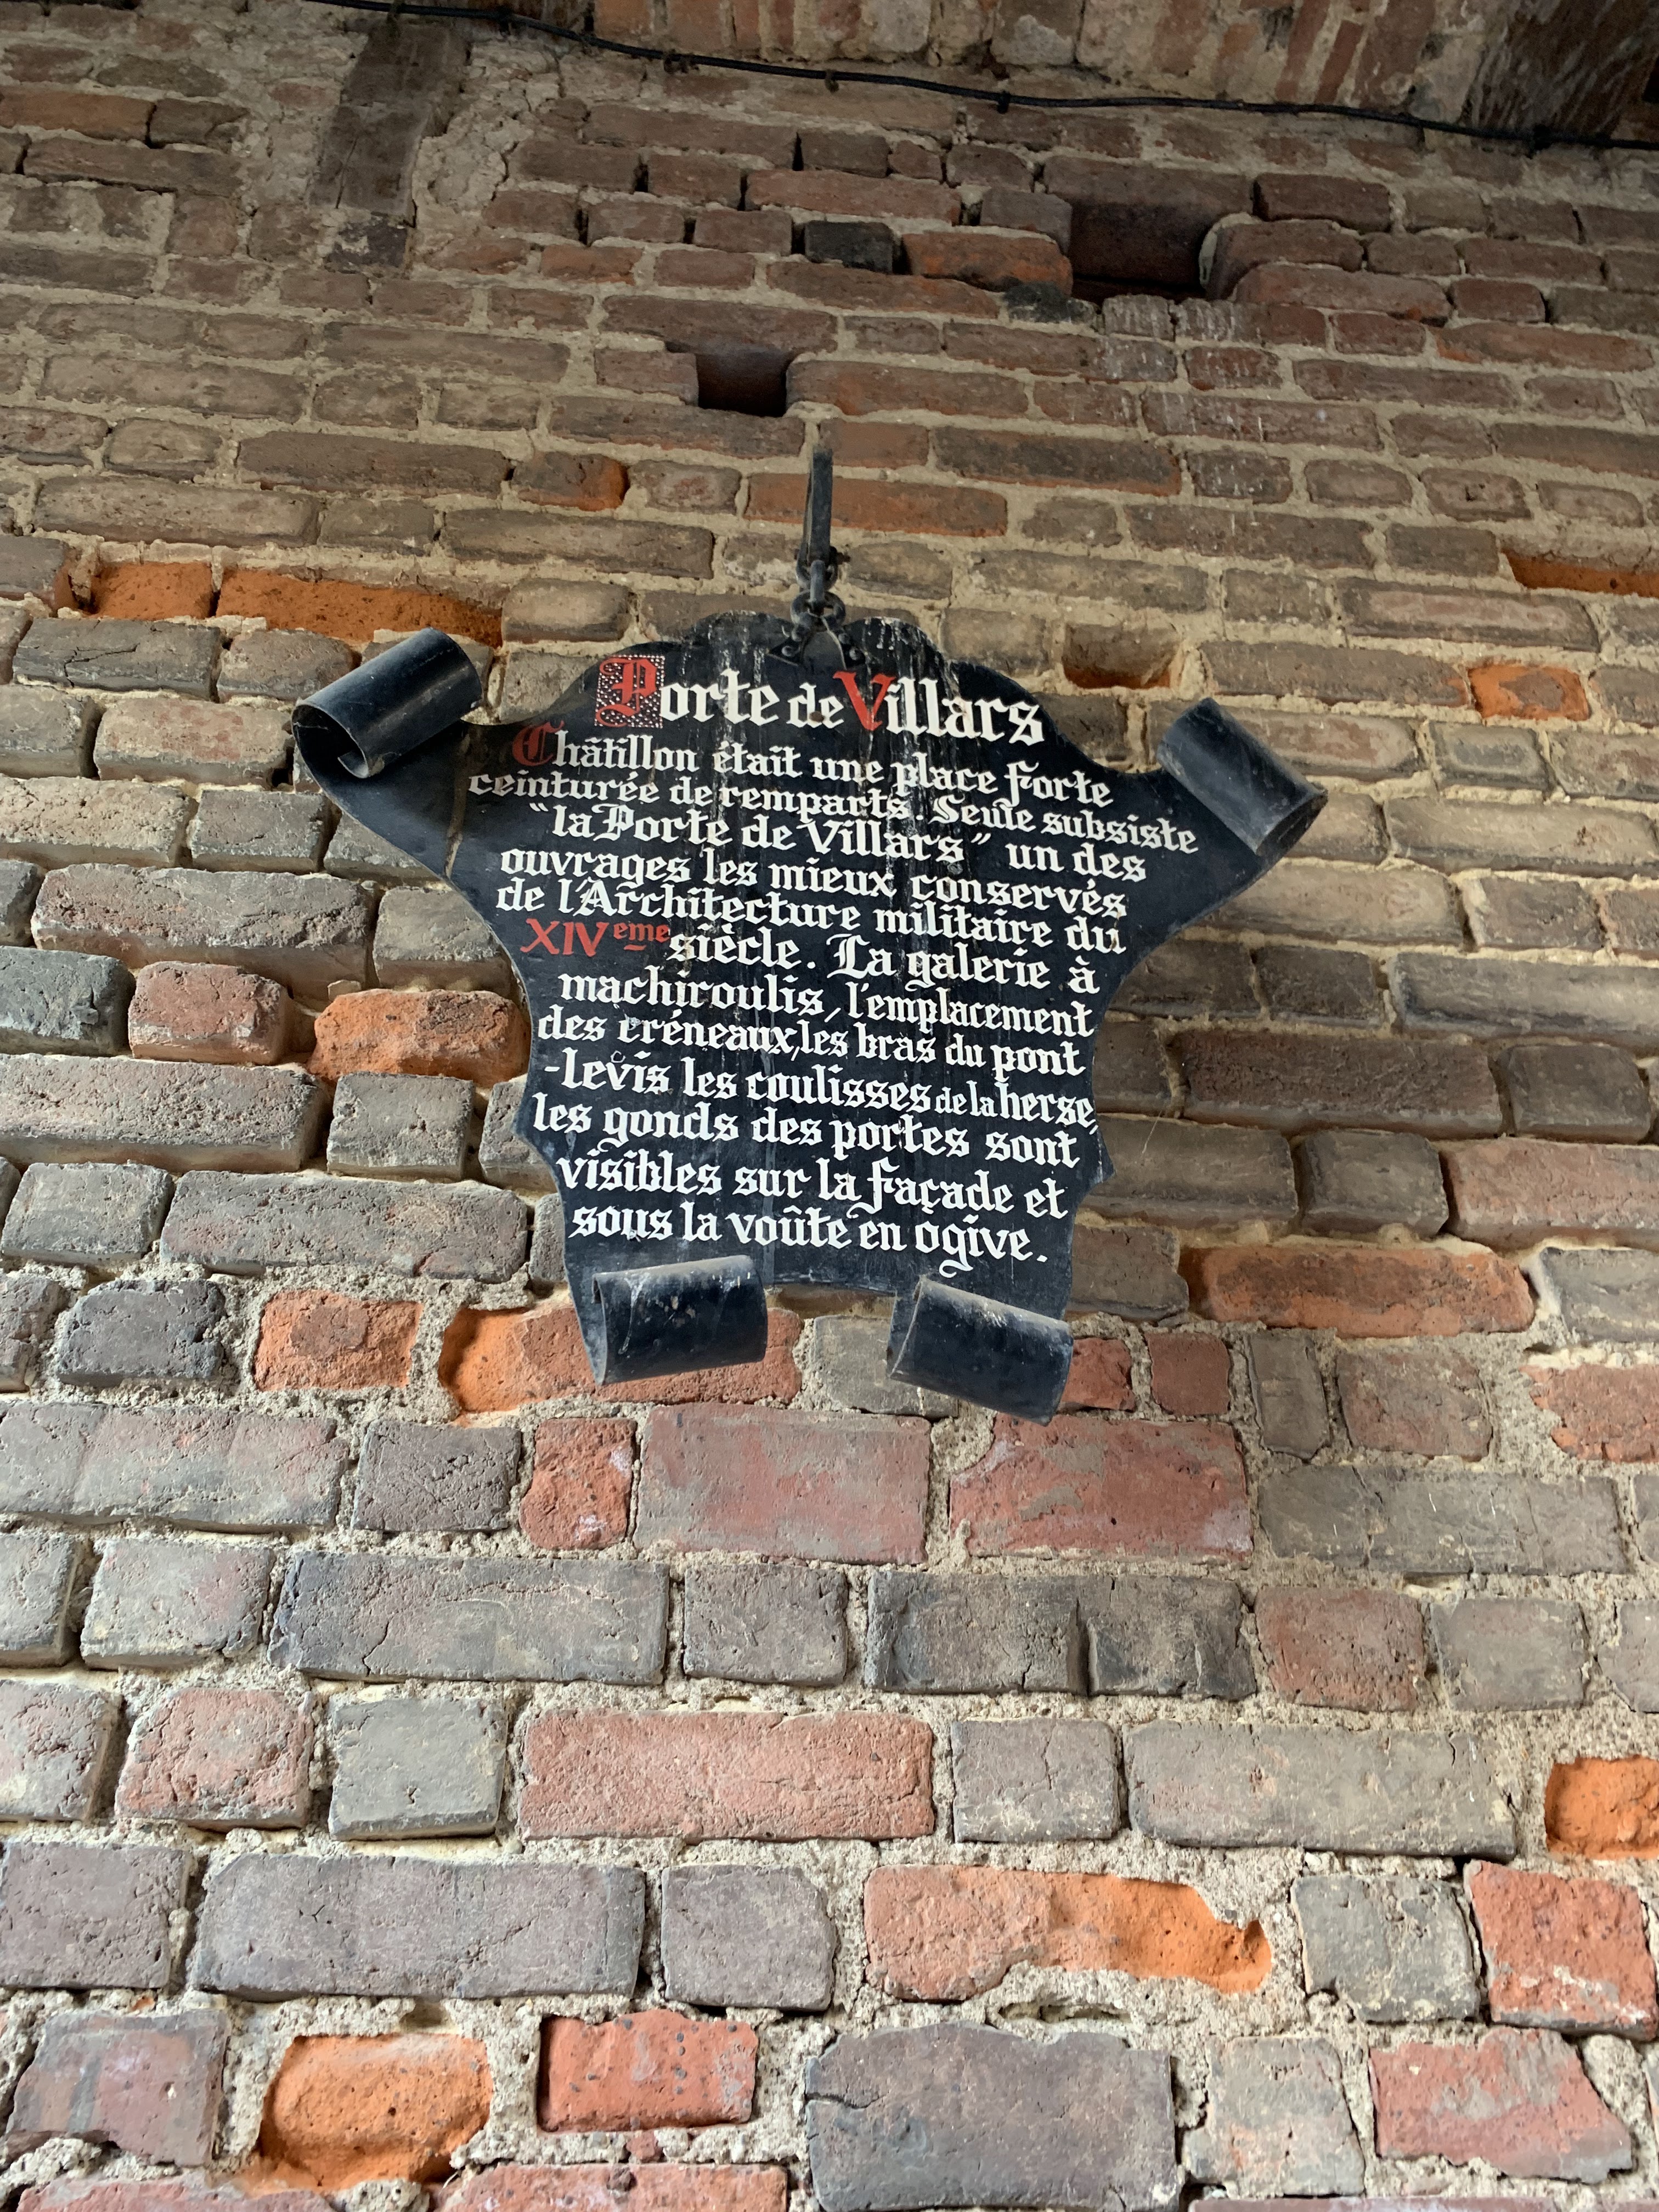 Porte de Villars
Châtillon était une place forte
ceinturée de remparts. Seule subsiste
"la Porte de Villars" un des
ouvrages les mieux conservés
de l'Architecture militaire du
XIVeme siècle. La galerie à
machicoulis, l'emplacement
des créneaux, les bras du pont
-levis les coulisses de la herse,
les gonds des portes sont
visibles sur la façade et
sous la voûte en ogive.